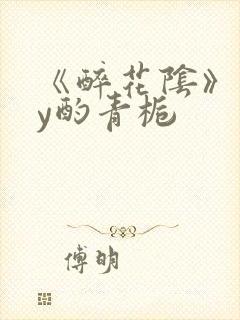 《醉花陰》
y酌青栀
傅明